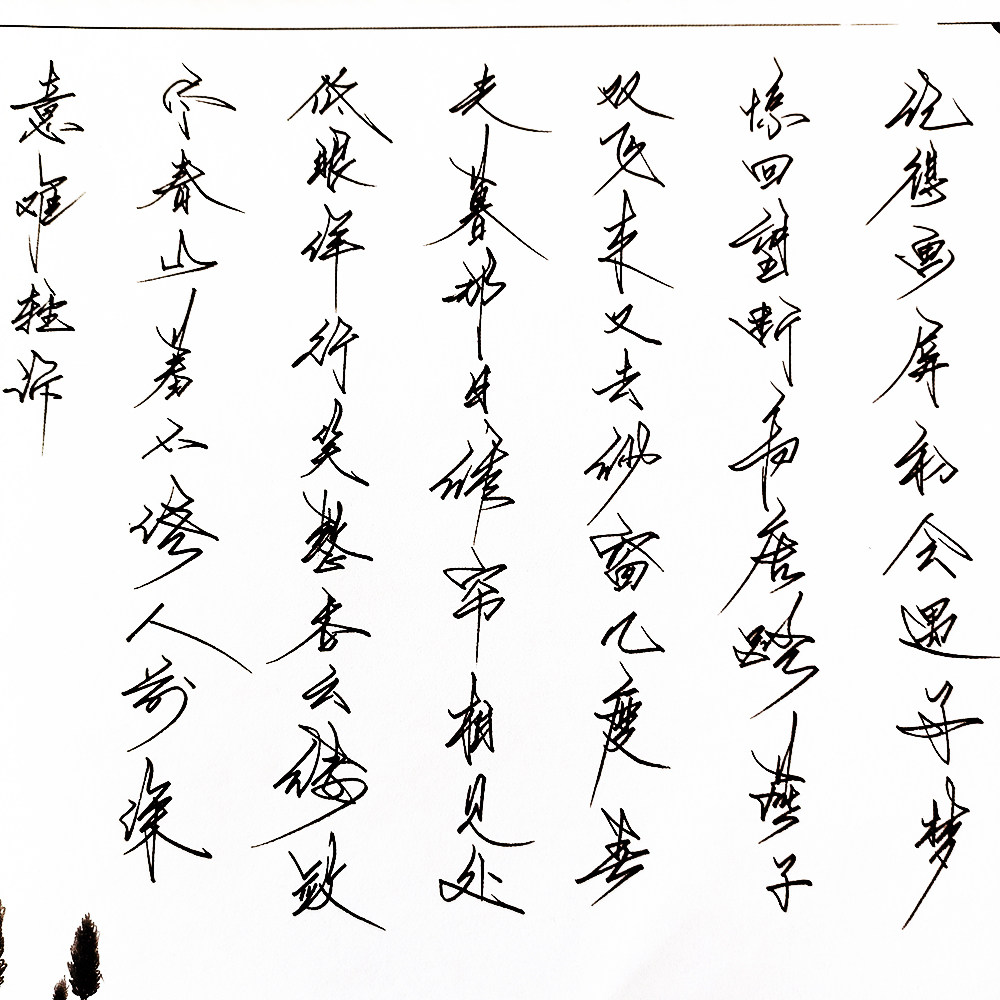 记得画屏初会遇好梦
惊回望断高唐路燕子
双飞来又去纱窗几度春
光暮那日绣帘相见处
低眼佯行笑整香云缕敛
尽春山羞不语人前深
意难轻诉